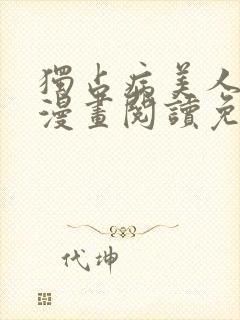 獨占病美人
漫畫閱讀免
代坤